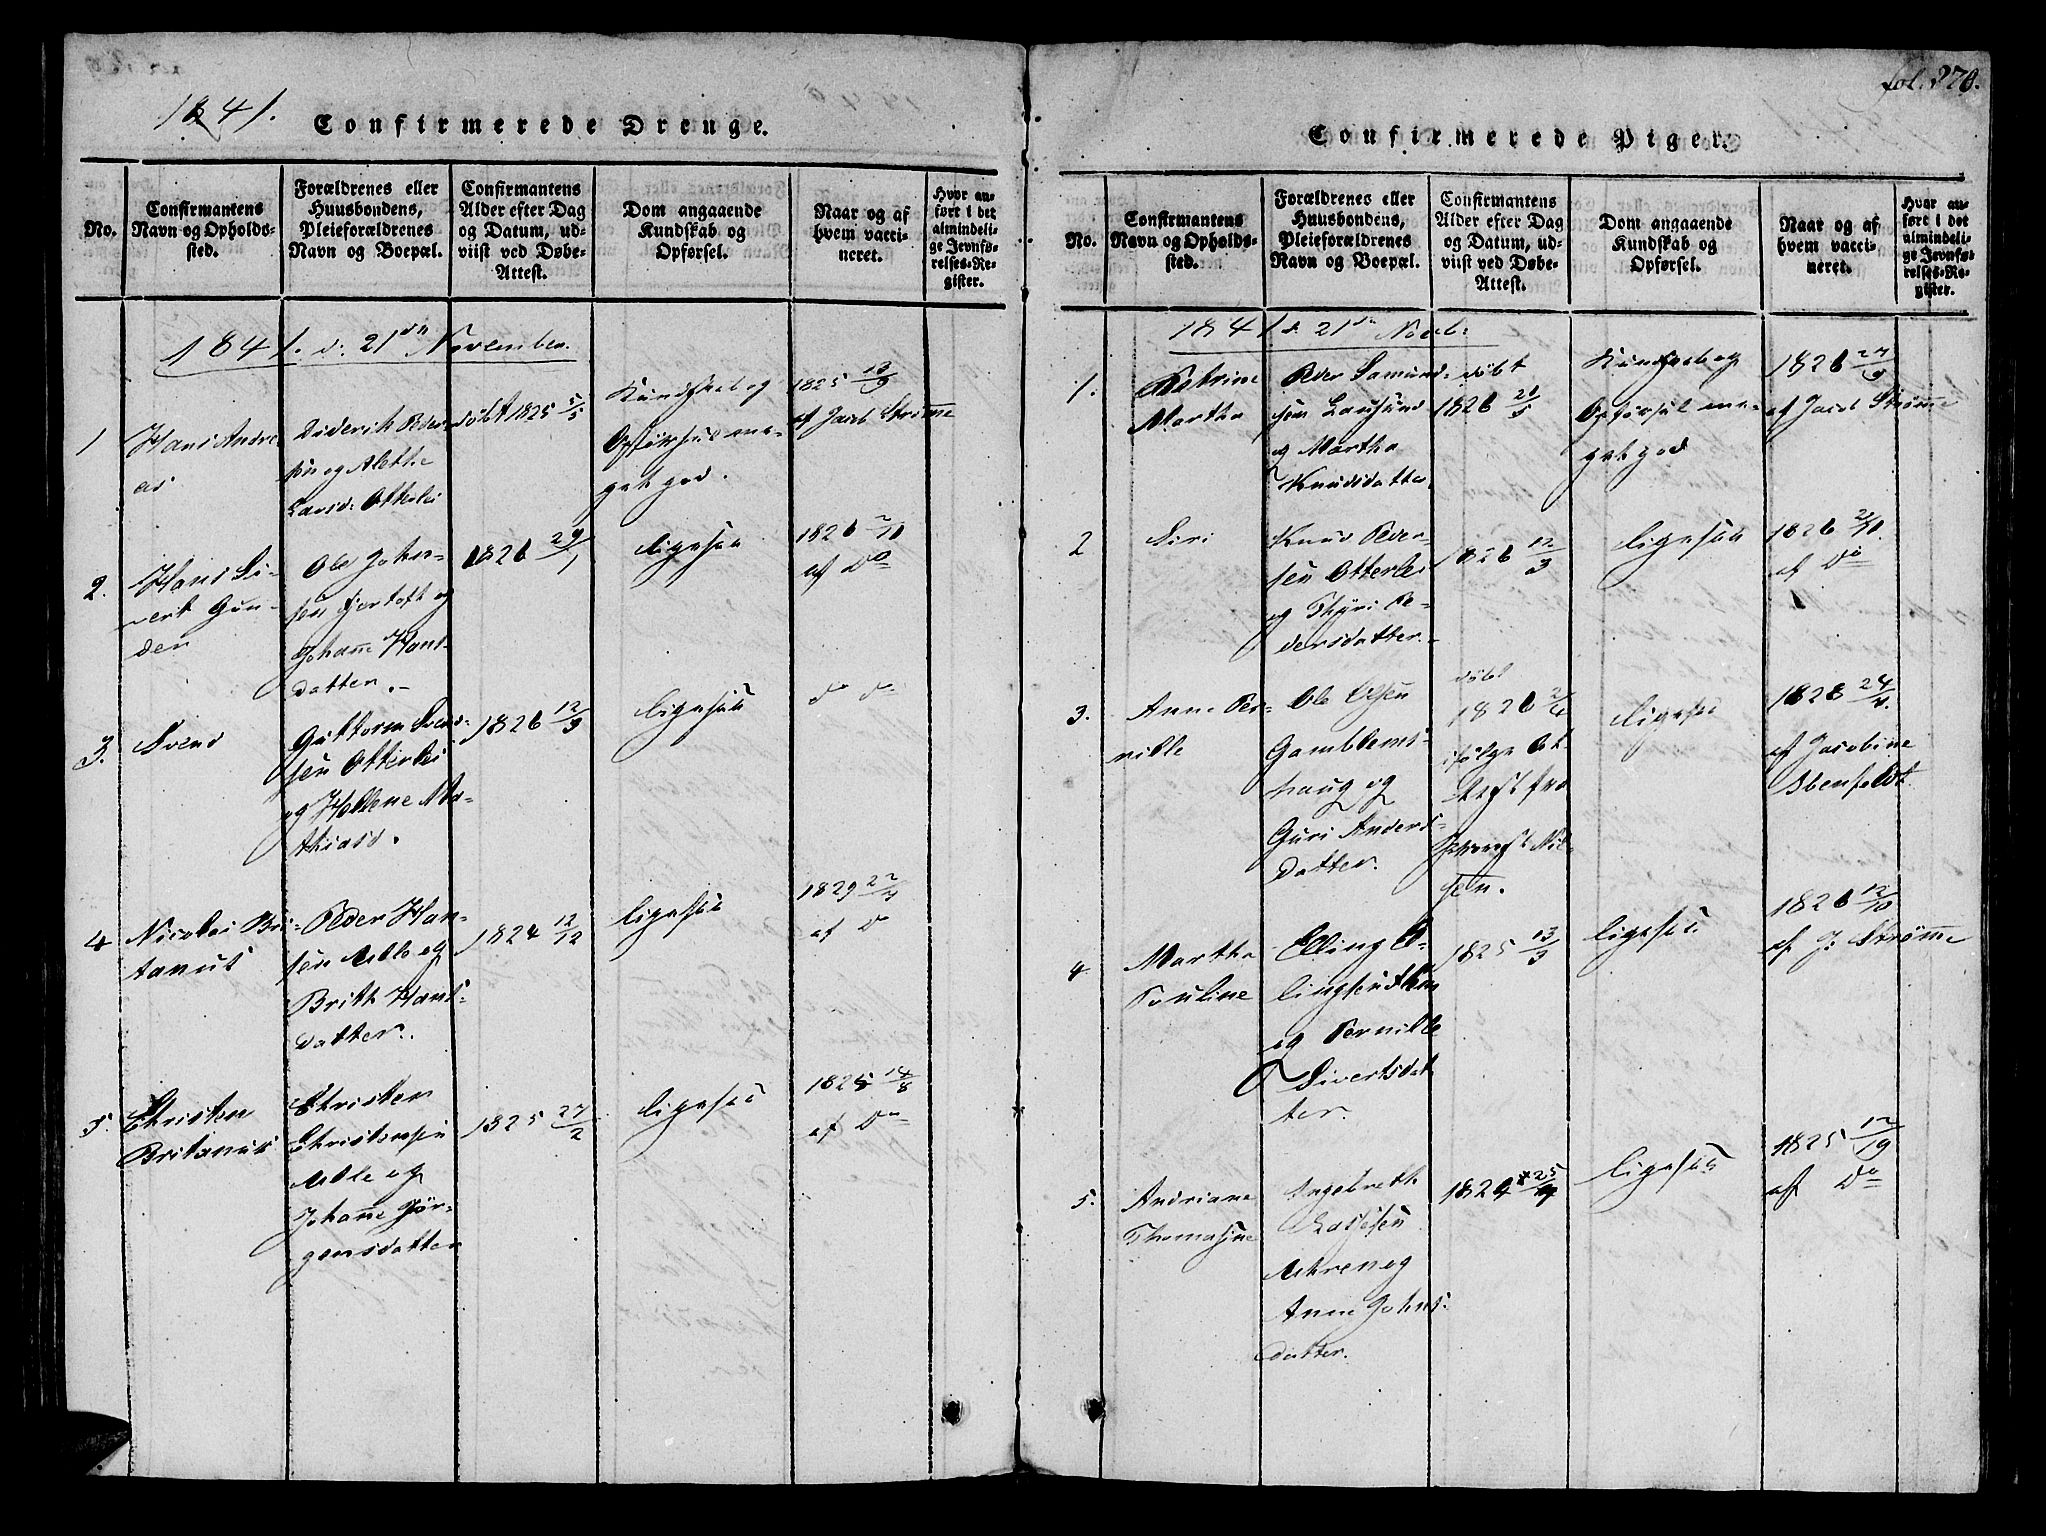 1841.
Confirmerede Drenge.
No.
Confirmantens
Navn og Opholds-
sted.
Forældrenes eller
Huusbondens,
Pleieforældrenes
Navn og Boepæl.
Confirmantens
Alder efter Dag
og Datum, ud-
viist ved Døbe-
Attest.
Dom angaaende
Kundskab og
Opførsel.
Naar og af
hvem vacci-
neret.
Hvor an-
ført i det
almindeli-
ge Jevnfø-
relses-Re-
gister.
1841. d: 21de November.
1
Hans Andre
as
Diderik Peder
sen og Alethe
Larsd: Otterlei
døbt 1825 5/5
Kundskab og
Opførsel me-
get god.
1825 13/9
af Jacob Strømme
2.
Hans Si-
vert Gun-
der
Ole John-
sen Fjertoft og
Johanne Hans-
datter.
1826 29/1
ligesaa
1826 2/10
af Do
3.
Svend
Guttorm Svend-
sen Otterlei
og Hellene Ma-
thiasd.
1826 12/3
ligesaa
do do
4
Nicolai Bri-
tanus
Peder Han-
sen Uhle og
Britt Hans-
datter.
1824 12/12
ligesaa
1829 22/7
af Do
5.
Christen
Britanus
Christen
Christensen
Uhle og
Johanne Jør-
gensdatter
1825 27/2
ligesaa
1825 14/8
af Do
fol. 270.
Confirmerede Piger.
No.
Confirmantens
Navn og Opholds-
sted.
Forældrenes eller
Huusbondens,
Pleieforældrenes
Navn og Boepæl.
Confirmantens
Alder efter Dag
og Datum, ud-
viist ved Døbe-
Attest.
Dom angaaende
Kundskab og
Opførsel.
Naar og af
hvem vacci-
neret.
Hvor an-
ført i det
almindeli-
ge Jevnfø-
relses-Re-
gister.
1841 d: 21de Novb:
1.
Petrine
Martha
Peder Samund-
sen Lausund
og Martha
Knudsdatter.
døbt
1826 21/5
Kundskab og
Opførsel me-
get god
1826 27/9
af Jacob Strømme
2
Siri
Knud Peder-
sen Otterlei
og Thyri Pe-
dersdatter.
1826 12/3
ligesaa
af Do
3.
Anne Per-
nille
Ole Olsen
Gamblems-
haug og
Guri Anders-
datter.
døbt
1826
ifølge At-
test fra
Provst Niel-
sen.
ligesaa
1828
af Jacobine
Ebenfeldt.
4.
Martha
Pouline
Elling El-
lingsen
og Pernille
Sivertsdat
ter.
1825 13/3
ligesaa
1826 12/10
af J: Strømme
5.
Andriane
Thomasine
Ingebreth
Lassesen
Uhren og
Anne Johns-
datter.
ligesaa
1825
af Do